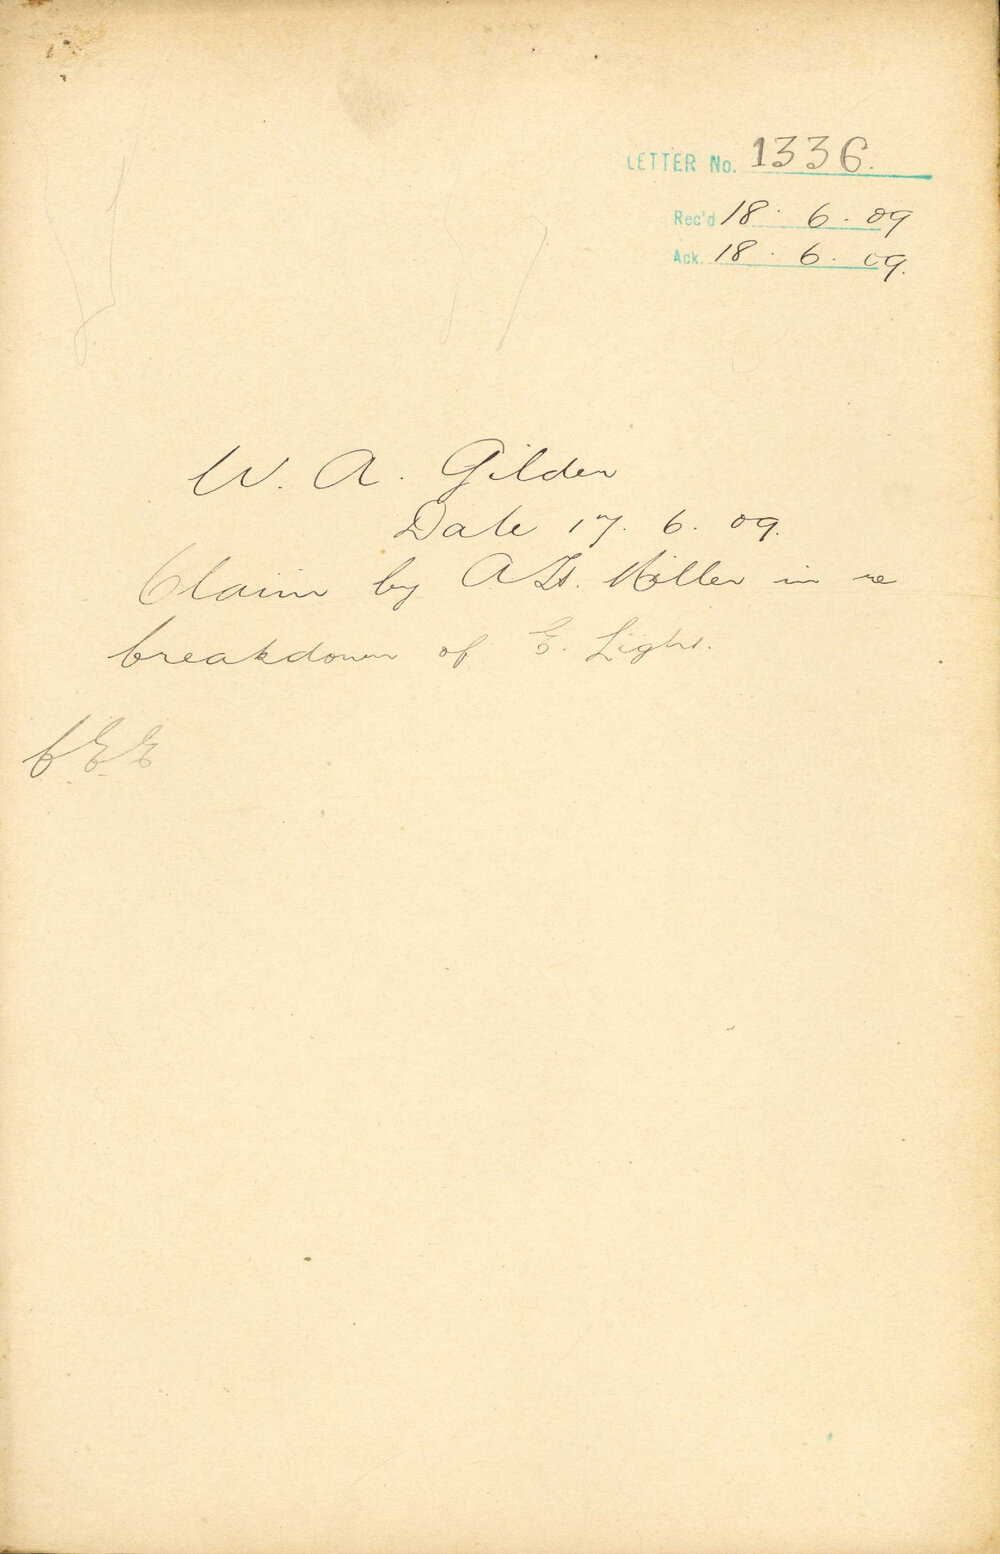 LETTER No. 1336.
Rec'd 18. 6. 09
Ack. 18. 6. 09.
W. A. Gilder
Date 17. 6. 09.
Claim by A. H. Miller in re
breakdown of E. Light.
C.E.E